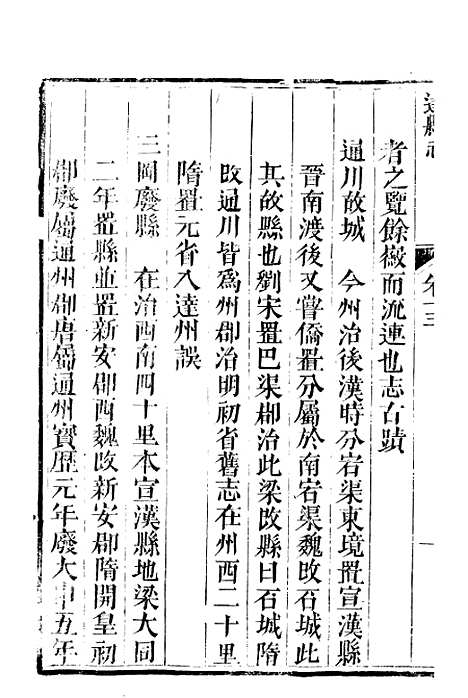 達縣志
卷十三
者之覽餘橶而流連也志古蹟
通川故城　今州治後漢時分宕渠東境置宣漢縣
晉南渡後又嘗僑置分屬於南宕渠魏改石城此
其故縣也劉宋置巴渠郡治此梁改縣曰石城隋
改通川皆爲州郡治明初省舊志在州西二十里
隋置元省入達州誤
三岡廢縣　在治西南四十里本宣漢縣地梁大同
二年置縣並置新安郡西魏改新安郡隋開皇初
郡廢屬通州郡唐屬通州寶歷元年廢大中五年